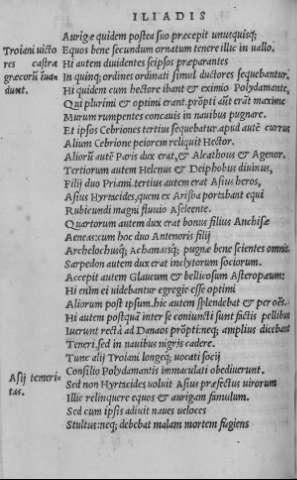 ILIADIS
Aurigæ quidem postea suo præcepit unusquisq;
Equos bene secundum ornatum tenere illic in uallo.
Hi autem diuidentes seipsos præparantes
In quinq; ordines ordinati simul ductores sequebantur.
Hi quidem cum hectore ibant & eximio Polydamante,
Qui plurimi & optimi erant. prõpti aũt erãt maxime
Murum rumpentes concauis in nauibus pugnare.
Et ipsos Cebriones tertius sequebatur. apud autẽ currus
Alium Cebrione peiorem reliquit Hector.
Aliorũ autẽ Paris dux erat, & Alcathous & Agenor.
Tertiorum autem Helenus & Deiphobus diuinus,
Filij duo Priami. tertius autem erat Asius heros,
Asius Hyrtacides, quem ex Arisba portabant equi
Rubicundi magni fluuio a Seleente.
Quartorum autem dux erat bonus filius Anchisæ
Aeneas: cum hoc duo Antenoris filij
Archelochusq; Acbamasq; pugnæ bene scientes omnis.
Sarpedon autem dux erat inclytorum sociorum.
Accepit autem Glaucum & bellicosum Asteropæum:
Hi enim ei uidebantur egregie esse optimi
Aliorum post ipsum. hic autem splendebat & per oẽs.
Hi autem postquã inter se coniuncti sunt factis pellibus
Iuerunt rectà ad Danaos prõpti: neq; amplius dicebant
Teneri. sed in nauibus nigris cadere.
Tunc alij Troiani longeq; uocati socij
Consilio Polydamantis immaculati obediuerunt.
Sed non Hyrtacides uoluit Asius præfectus uirorum
Illic relinquere equos & aurigam famulum.
Sed cum ipsis adiuit naues ueloces
Stultus: neq; debebat malam mortem fugiens
Troiani uicto
res castra
græcorũ inua
dunt.
Asij temeri-
tas.